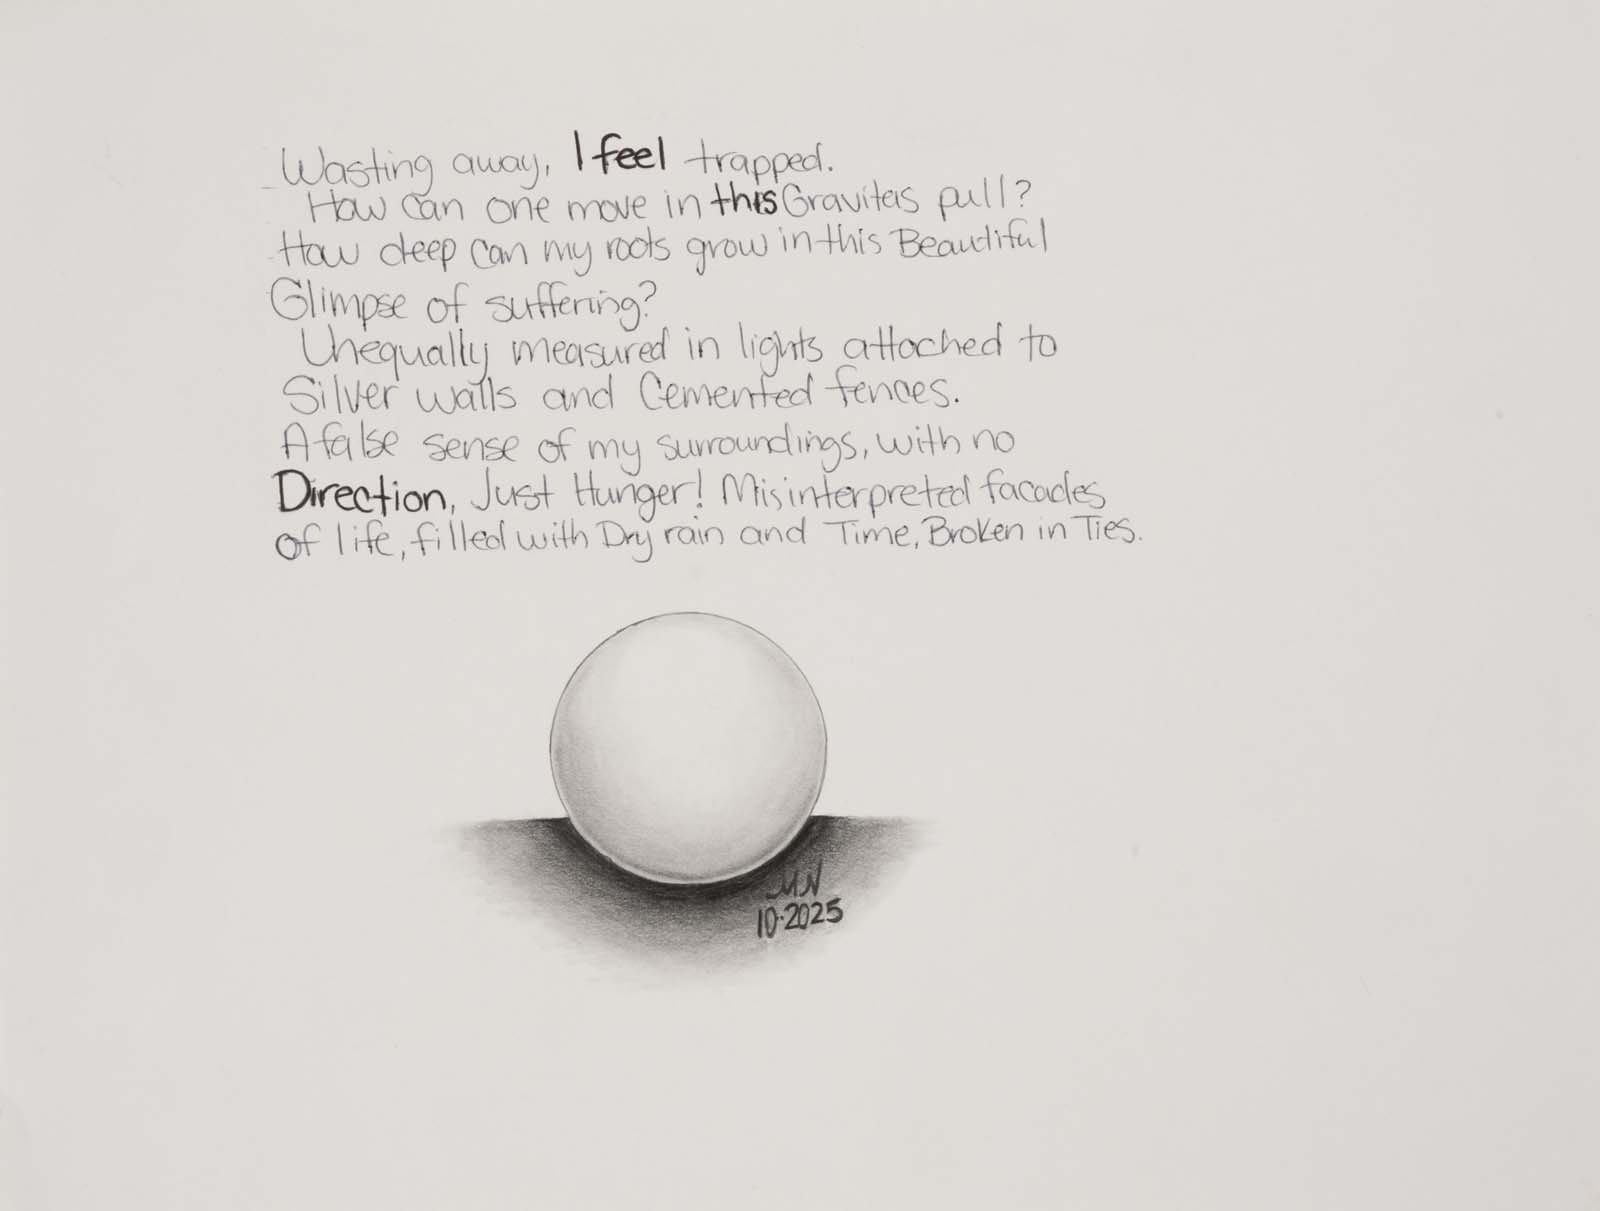 Wasting away, I feel trapped.
How can one move in this Gravitas pull?
How deep can my roots grow in this Beautiful
Glimpse of suffering?
Unequally measured in lights attached to
Silver walls and Cemented fences.
A false sense of my surroundings, with no
Direction, Just Hunger! Misinterpreted facades
of life, filled with Dry rain and Time, Broken in Ties.
MN
10-2025